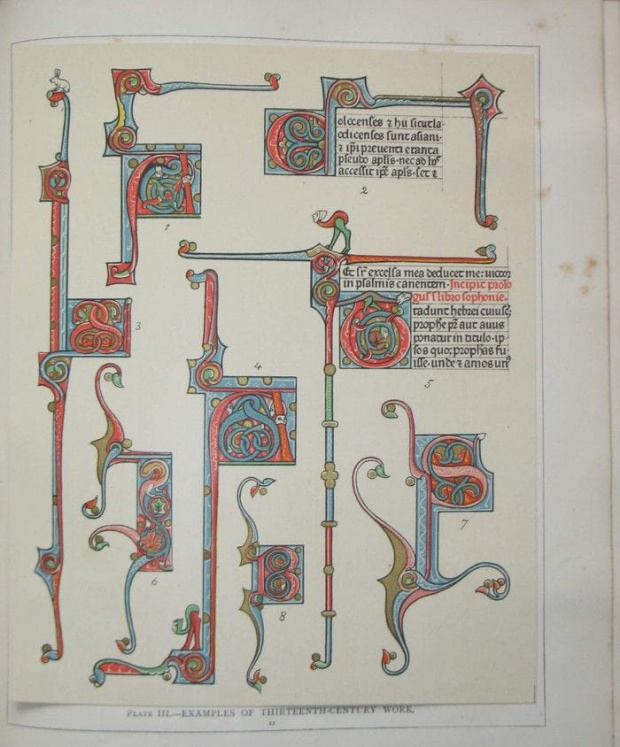 1
olocenses ⁊ hii sicut la
odicenses sunt asiani·
⁊ ip̄i preventi erant a
pseudo apl̄is· nec ad hos
accessit ip̄e apl̄s· set ⁊
2
3
4
Et sr̄ excelsa mea deducet me: victor
in psalmis canentem· Incipit prolo
gus ī libro sophonie·
tradunt hebrei
prophe pr̄ aut avus
ponatur in titulo· ip
sos quoq; prophās fu
isse· unde ⁊ amos
5
6
7
8
PLATE III.—EXAMPLES OF THIRTEENTH-CENTURY WORK.